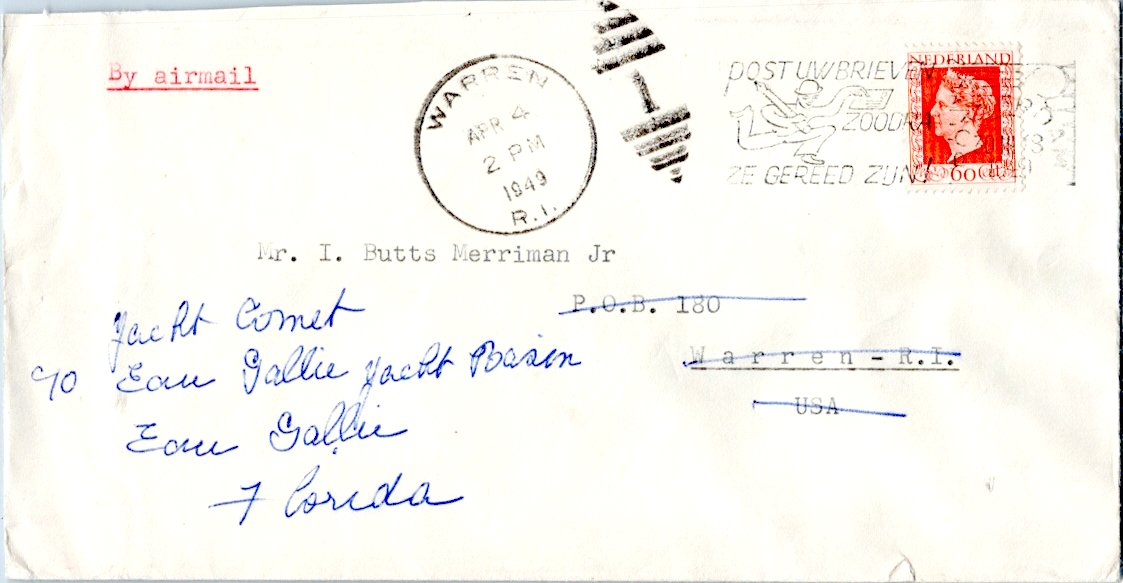 By airmail
WARREN
APR 4
2 PM
1949
R.I.
POST UW BRIEVEN
ZOODRA
ZE GEREED ZIJN!
NEDERLAND
60 ct
Mr. I. Butts Merriman Jr
P.O.B. 180
Warren - R.I.
USA
Yacht Comet
c/o Eau Gallie Yacht Basin
Eau Gallie
Florida